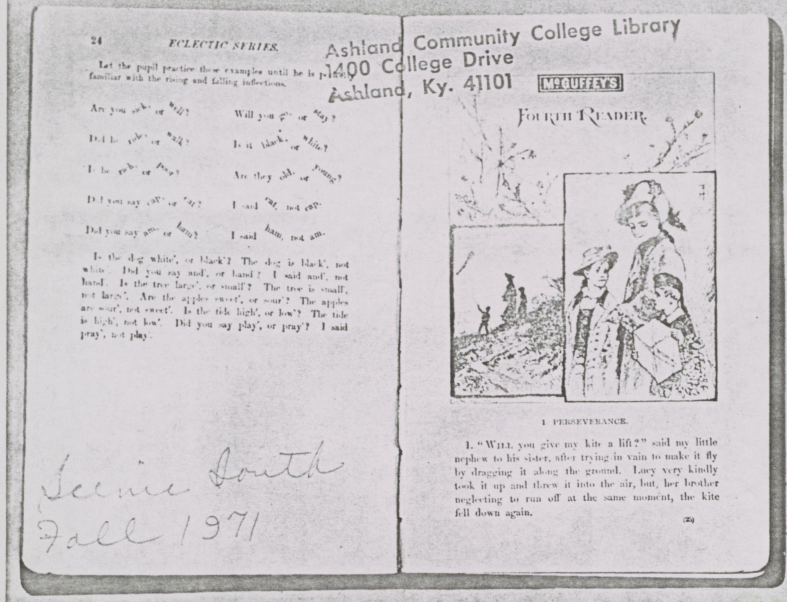 24 ECLECTIC SERIES.
Let the pupil practice these examples until he is
familiar with the rising and falling inflections.
Are you sick, or well? Will you go, or stay?
Did he ride, or walk? Is it black, or white?
Is he rich, or poor? Are they old, or young?
Did you say cap, or cat? I said cat, not cap.
Did you say am, or ham? I said ham, not am.
Is the dog white', or black'? The dog is black', not
white'. Did you say and', or hand'? I said and', not
hand'. Is the tree large', or small'? The tree is small',
not large'. Are the apples sweet', or sour'? The apples
are sour', not sweet'. Is the tide high', or low'? The tide
is high', not low'. Did you say play', or pray'? I said
pray', not play'.
Scenic South
Fall 1971
Ashland Community College Library
1400 College Drive
Ashland, Ky. 41101
McGUFFEY'S
FOURTH READER.
1 PERSEVERANCE.
1. "WILL you give my kite a lift?" said my little
nephew to his sister, after trying in vain to make it fly
by dragging it along the ground. Lucy very kindly
took it up and threw it into the air, but, her brother
neglecting to run off at the same moment, the kite
fell down again.
(25)